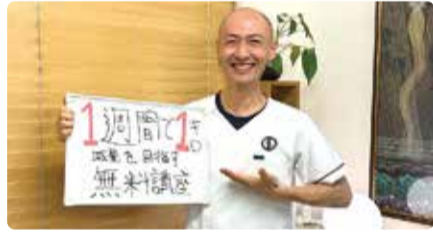 1週間で1キロ
減量を目指す
無料講座